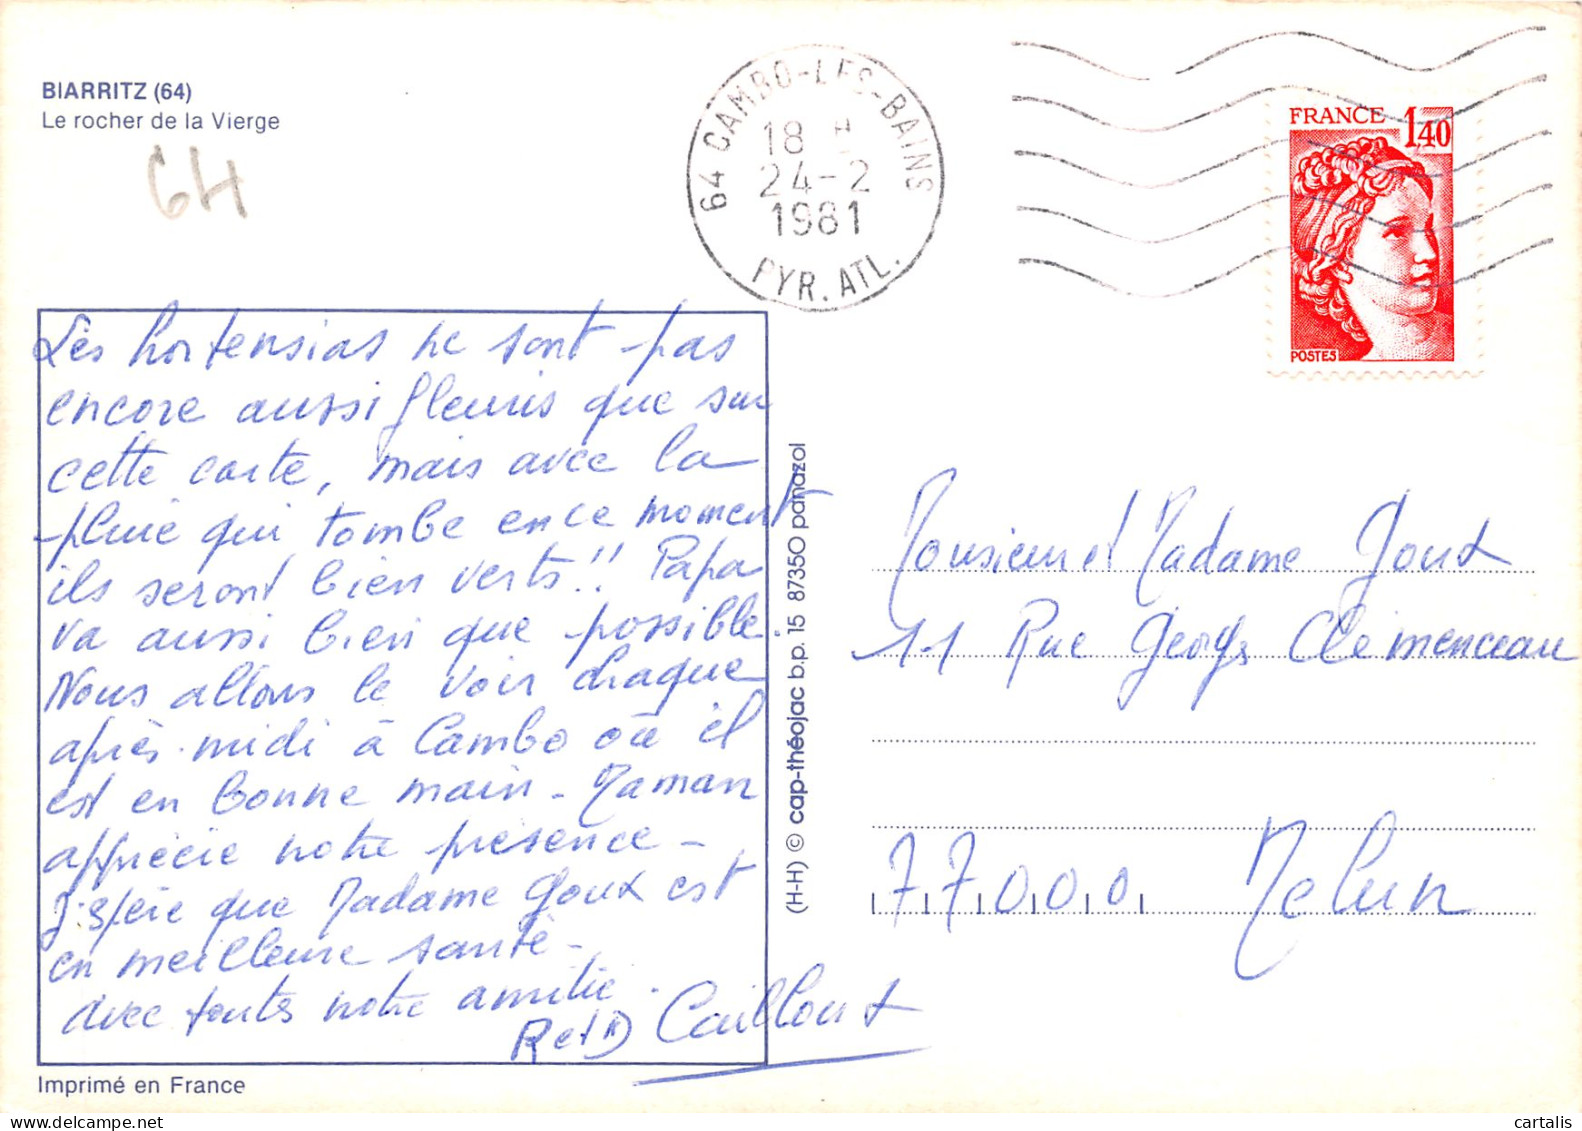 BIARRITZ (64)
Le rocher de la Vierge
64
64 CAMBO-LES-BAINS
18 H
24-2
1981
PYR. ATL.
FRANCE 1,40
POSTES
Les hortensias ne sont pas
encore aussi fleuris que sur
cette carte, mais avec la
pluie qui tombe en ce moment
ils seront bien verts!! Papa
va aussi bien que possible.
Nous allons le voir chaque
après-midi à Cambo où il
est en bonne main - Maman
apprécie notre présence -
J'espère que Madame Goux est
en meilleure santé -
avec toute notre amitié.
R et D Cailloux
Imprimé en France
(H-H) © cap-théojac b.p. 15 87350 panazol
Monsieur et Madame Goux
11 Rue Georges Clémenceau
77000 Melun
cartalis